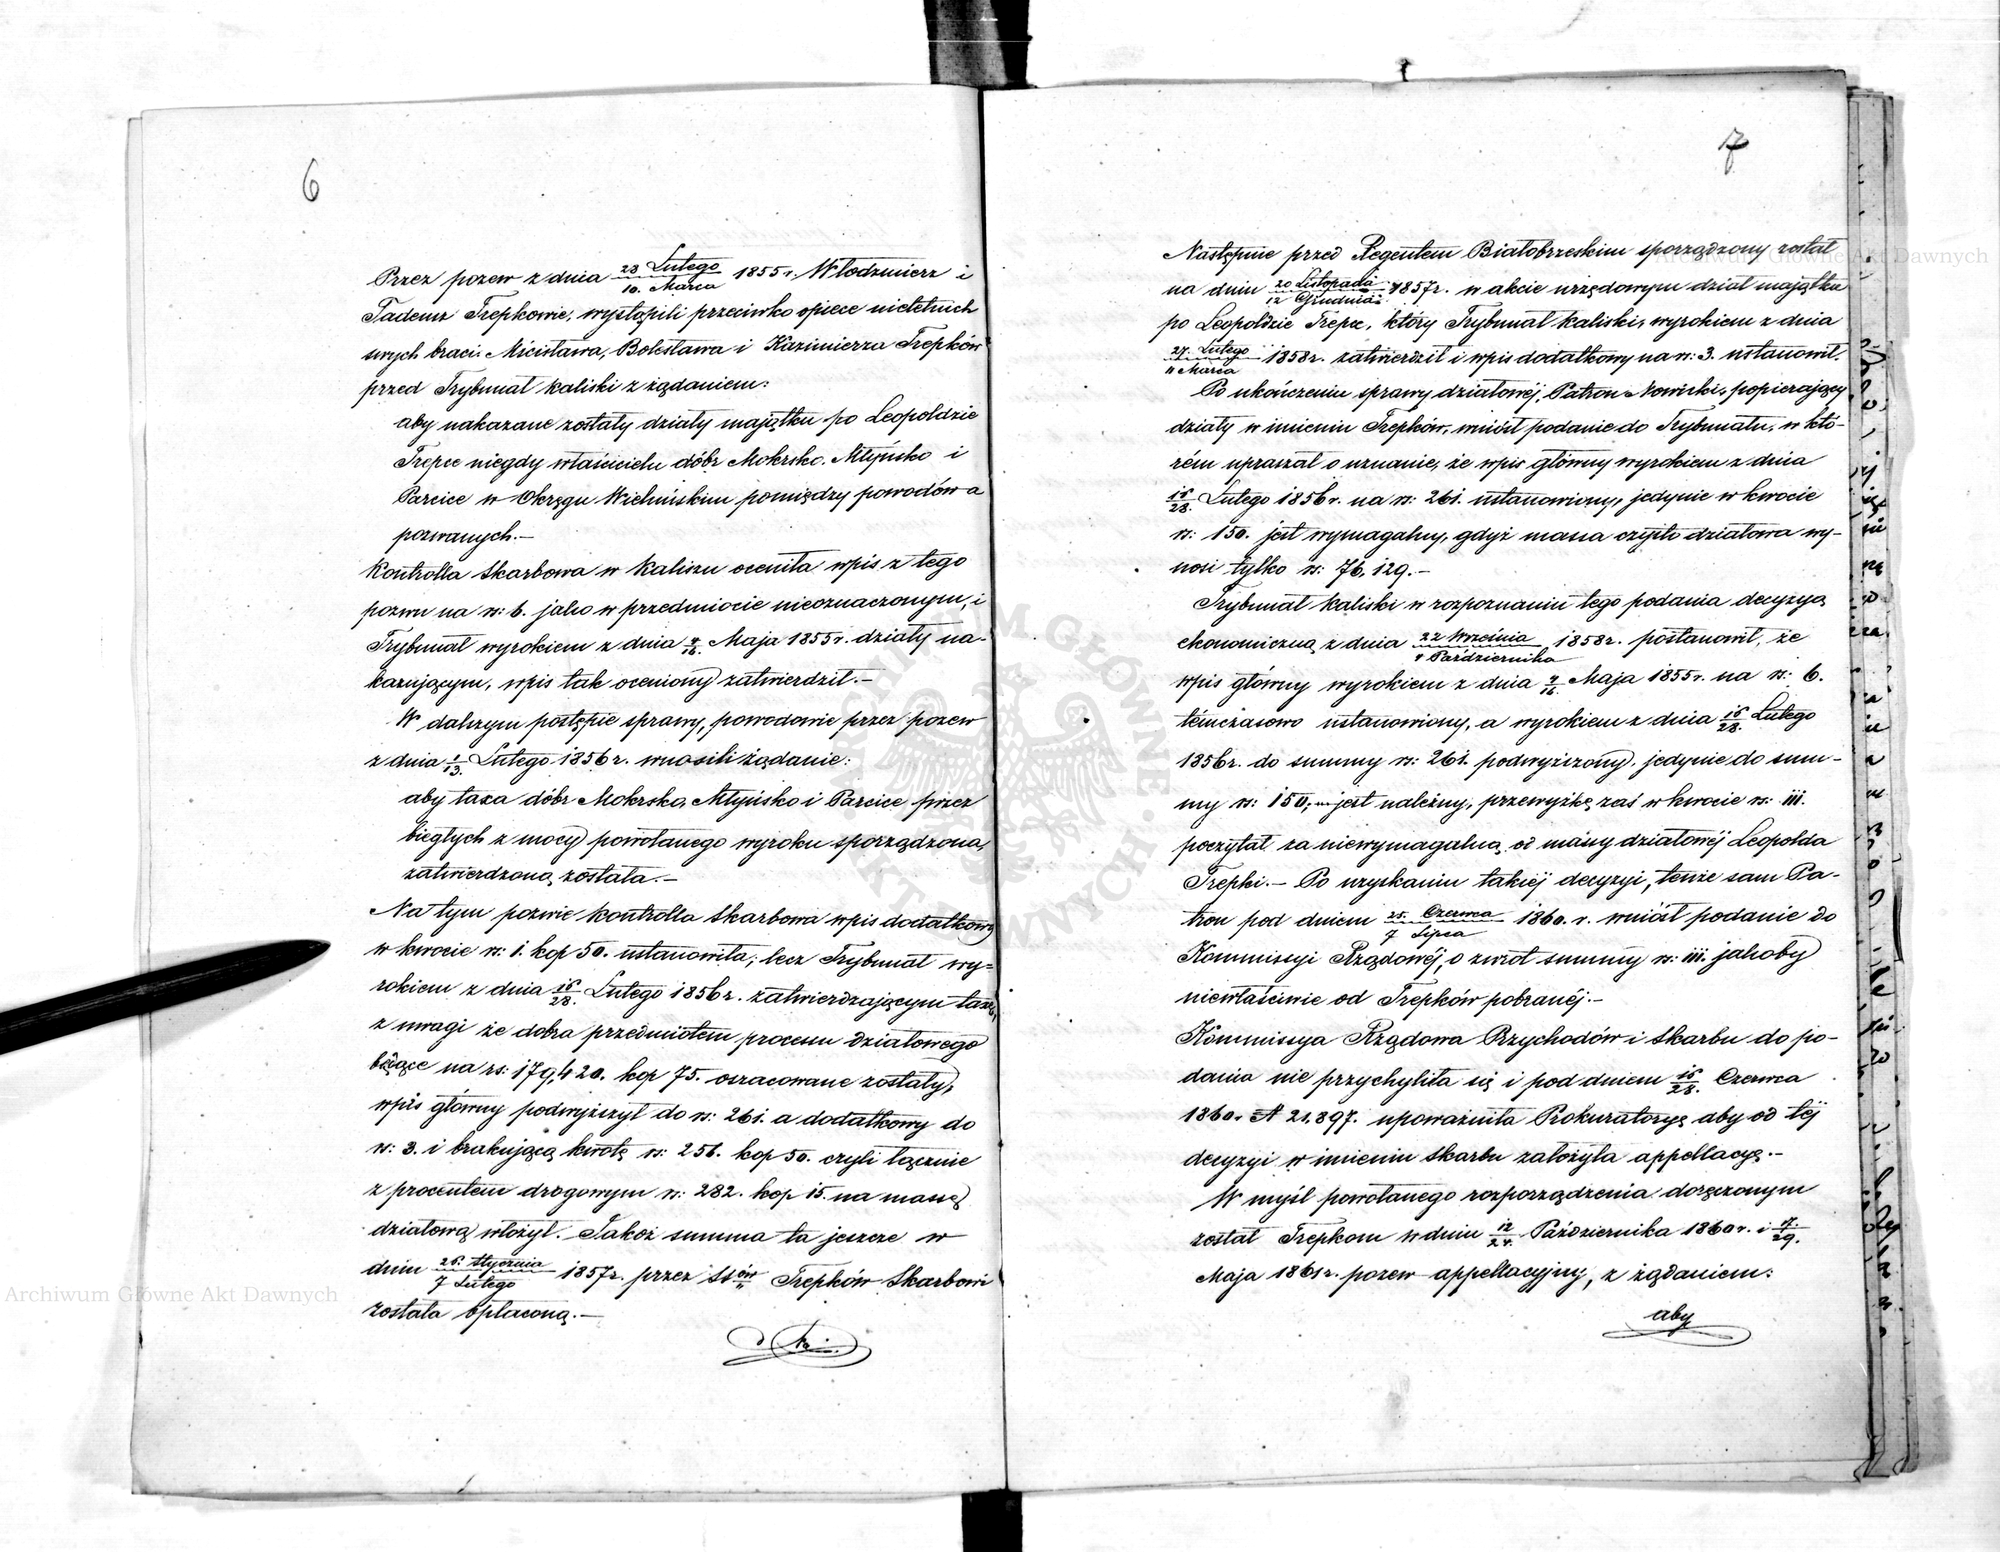 6
Przez pozew z dnia 26 Lutego / 10. Marca 1855 r. Włodzimierz i
Tadeusz Trepkowie, wystąpili przeciwko opiece nieletnich
swych braci: Mieisława, Bolesława i Kazimierza Trepków
przed Trybunał kaliski z żądaniem:
aby nakazane zostały działy majątku po Leopoldzie
Trepce niegdy właścicielu dóbr Mokrsko, Młyńsko i
Parcice w Okręgu Wieluńskim pomiędzy powodów a
pozwanych.—
Kontrolla Skarbowa w Kaliszu oceniła wpis z tego
pozwu na rs: 6. jako w przedmiocie nieoznaczonym, i
Trybunał wyrokiem z dnia 4/16. Maja 1855 r. działy na-
kazującym, wpis tak oceniony zatwierdził.—
W dalszym postępie sprawy, powodowie przez pozew
z dnia 1/13. Lutego 1856 r. wnosili żądanie:
aby taxa dóbr Mokrsko, Młyńsko i Parcice przez
biegłych z mocy powołanego wyroku sporządzona,
zatwierdzoną została.—
Na tym pozwie kontrolla Skarbowa wpis dodatkowy
w kwocie rs: 1. kop 50. ustanowiła; lecz Trybunał wy=
rokiem z dnia 16/28. Lutego 1856 r. zatwierdzającym taxę,
z uwagi że dobra przedmiotem processu działowego
będące na rs: 179,420. kop 75. oszacowane zostały,
wpis główny podwyższył do rs: 261. a dodatkowy do
rs: 3. i brakującą kwotę rs: 256. kop 50. czyli łącznie
z procentem drogowym rs: 282. kop 15. na massę
działową włożył. Jakoż summa ta jeszcze w
dniu 26. Stycznia / 7 Lutego 1857 r. przez SSów Trepków Skarbowi
została opłaconą.—
7
Następnie przed Regentem Białobrzeskim sporządzony został
na dniu 20 Listopada / 12 Grudnia 1857 r. w akcie urzędowym dział majątku
po Leopoldzie Trepce, który Trybunał kaliski, wyrokiem z dnia
27. Lutego / 11 Marca 1858 r. zatwierdził i wpis dodatkowy na rs: 3. ustanowił.
Po ukończeniu sprawy działowéj, Patron Nowicki, popierający
działy w imieniu Trepków, wniósł podanie do Trybunału, w któ-
rém upraszał o uznanie, że wpis główny wyrokiem z dnia
16/28. Lutego 1856 r. na rs: 261. ustanowiony, jedynie w kwocie
rs: 150. jest wymagalny, gdyż massa czysto działowa wy-
nosi tylko rs: 76,129.—
Trybunał kaliski w rozpoznaniu tego podania decyzyą
ekonomiczną z dnia 22 Września / 4 Października 1858 r. postanowił, że
wpis główny wyrokiem z dnia 4/16. Maja 1855 r. na rs: 6.
témczasowo ustanowiony, a wyrokiem z dnia 16/28. Lutego
1856 r. do summy rs: 261. podwyższony, jedynie do sum-
my rs: 150, jest należny, przewyżkę zaś w kwocie rs: 111.
poczytał za niewymagalną od massy działowéj Leopolda
Trepki.— Po uzyskaniu takiéj decyzyi, tenże sam Pa-
tron pod dniem 25. Czerwca / 7 Lipca 1860. r. wniósł podanie do
Kommissyi Rządowéj, o zwrot summy rs: 111. jakoby
niewłaściwie od Trepków pobranéj.—
Kommissya Rządowa Przychodów i Skarbu do po-
dania nie przychyliła się i pod dniem 16/28. Czerwca
1860 r. N 21,897. upoważniła Prokuratoryę aby od téj
decyzyi w imieniu Skarbu założyła appellacyę.—
W myśl powołanego rozporządzenia doręczonym
został Trepkom w dniu 12/24. Października 1860 r. i 17/29.
Maja 1861 r. pozew appellacyjny, z żądaniem:
aby
Archiwum Główne Akt Dawnych
Archiwum Główne Akt Dawnych